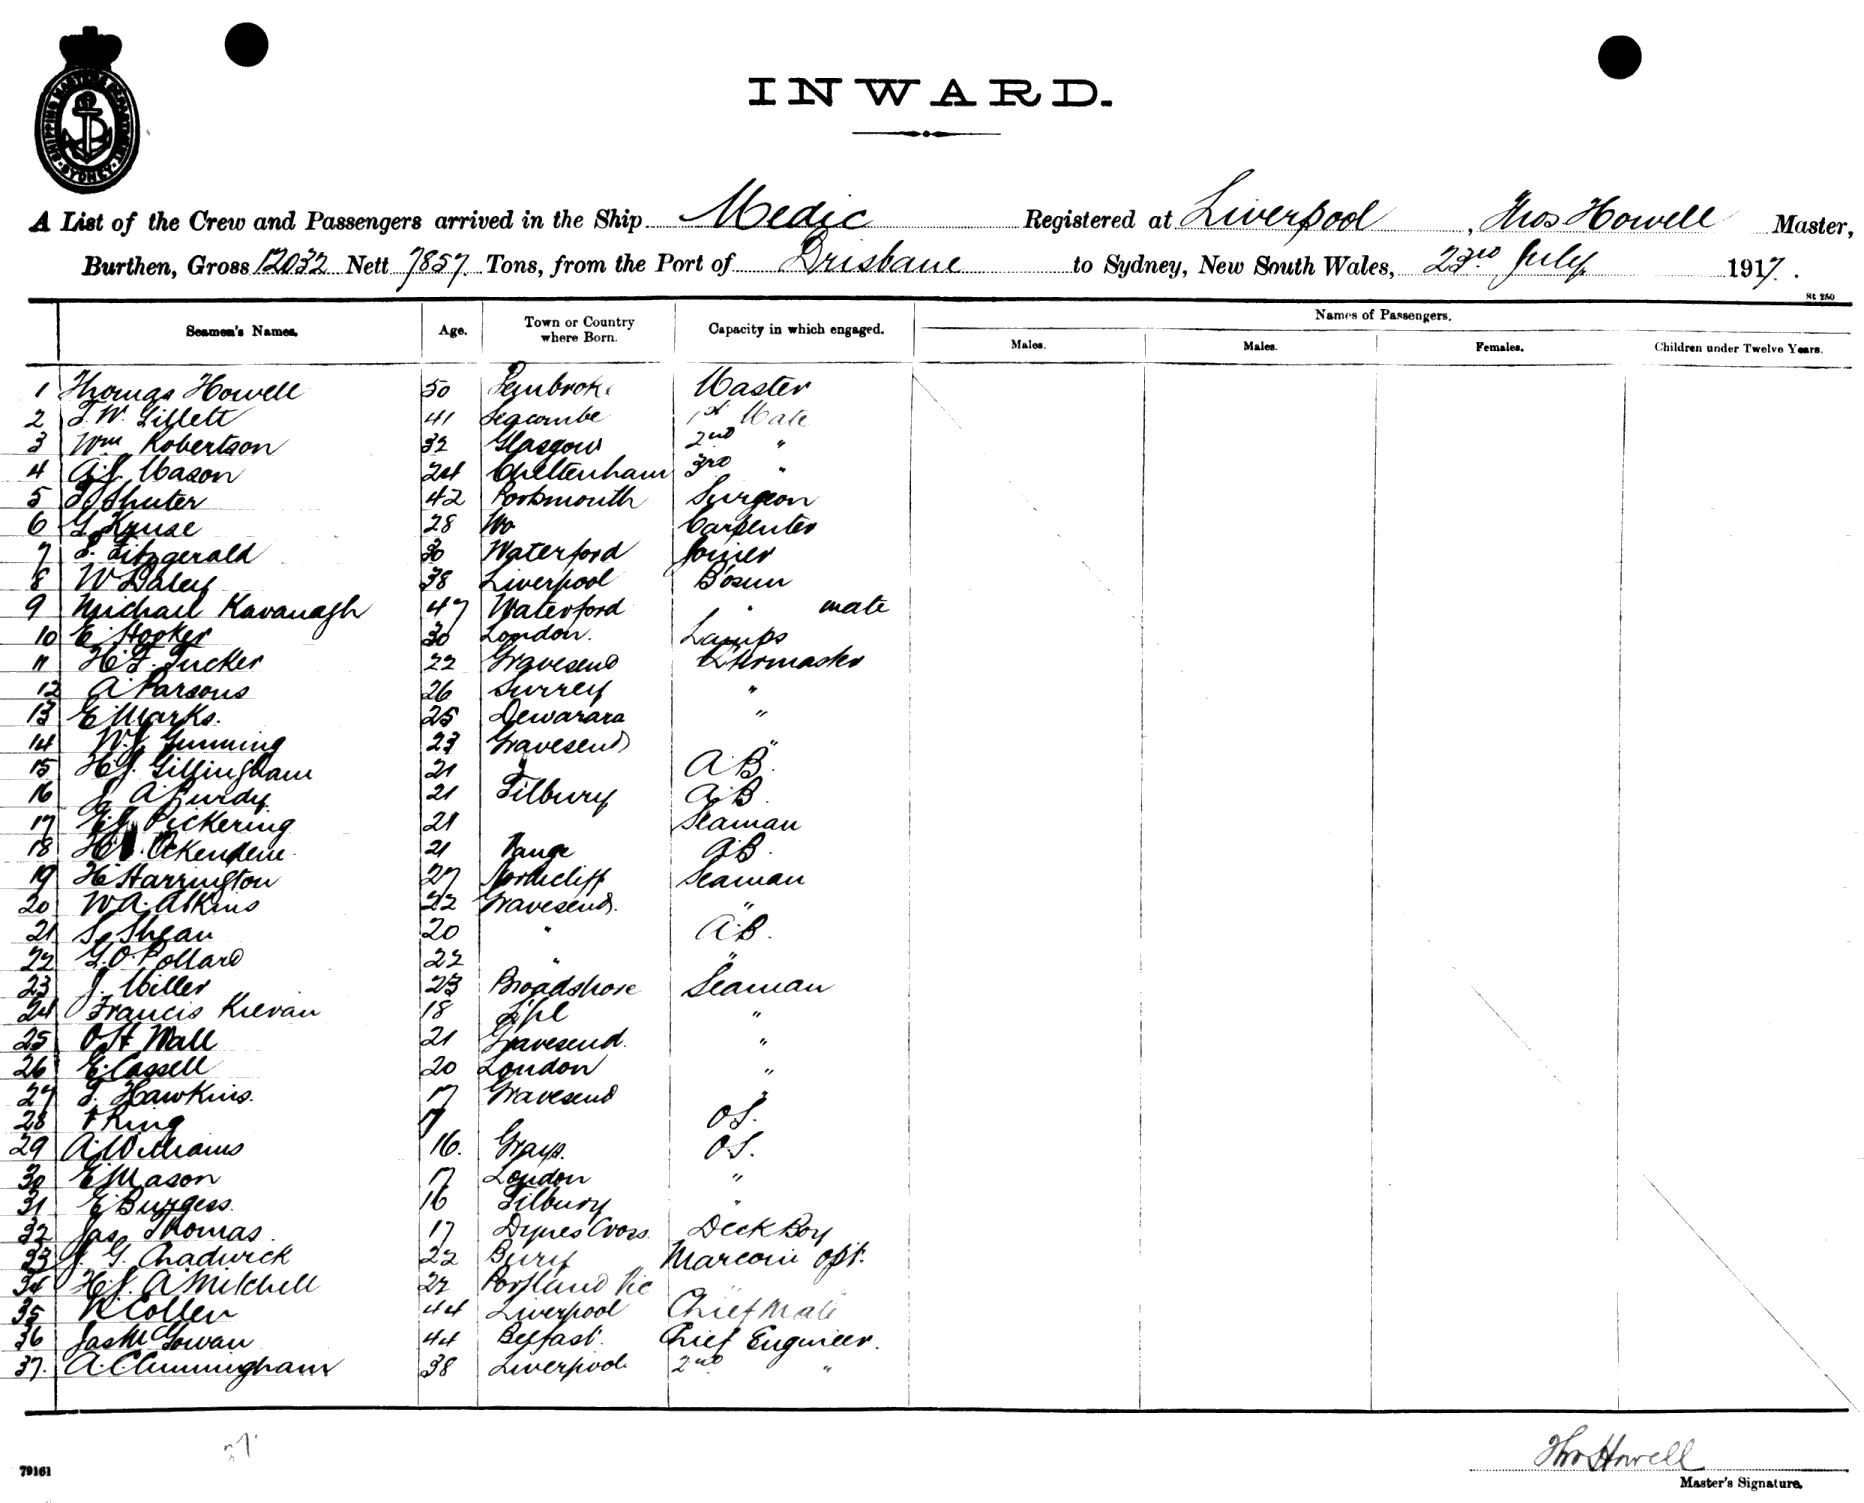 SHIPPING MASTER'S DEPARTMENT SYDNEY
INWARD.
A List of the Crew and Passengers arrived in the Ship Medic Registered at Liverpool, Thos Howell Master,
Burthen, Gross 12032 Nett 7857 Tons, from the Port of Brisbane to Sydney, New South Wales, 23rd July 1917.
St 250
Seamen's Names. Age. Town or Country where Born. Capacity in which engaged. Names of Passengers.
Males. Males. Females. Children under Twelve Years.
1 Thomas Howell 50 Pembroke Master
2 T. W. Gillett 41 Seacombe 1st Mate
3 Wm Robertson 32 Glasgow 2nd "
4 A. J. Mason 24 Cheltenham 3rd "
5 Shuter 42 Portsmouth Surgeon
6 Kruse 28 Carpenter
7 Fitzgerald 30 Waterford Joiner
8 W Daley 38 Liverpool B'osun
9 Michael Kavanagh 47 Waterford " mate
10 E Hooker 30 London. Lamps
11 H. F. Tucker 22 Gravesend Qtermaster
12 A Parsons 26 Surrey "
13 E Marks. 25 "
14 W. J. Gunning 23 Gravesend "
15 H. J. Gillingham 21 A.B.
16 J A Purdy 21 Tilbury A.B.
17 E. J. Pickering 21 Seaman
18 H. Ockendene 21 Vange A.B.
19 H Harrington 27 Northcliff Seaman
20 W. A. Atkins 22 Gravesend. "
21 S. Shean 20 " A.B.
22 G. O. Pollard 22 " "
23 J. Miller 23 Broadshore Seaman
24 Francis Kievan 18 L'pl "
25 O. H Wall 21 Gravesend. "
26 E. Cassell 20 London "
27 T. Hawkins. 17 Gravesend "
28 King 17 O.S.
29 A. Williams 16. Grays. O.S.
30 E Mason 17 London "
31 E Burgess. 16 Tilbury "
32 Jas Thomas. 17 Dynes Cross. Deck Boy
33 J. G. Chadwick 22 Bury Marconi Opt.
34 H. J. A Mitchell 22 Portland Vic "
35 Collen 44 Liverpool Chief Mate
36 Jas McGowan 44 Belfast. Chief Engineer.
37. A. Cunningham 38 Liverpool 2nd "
37
79161
Thos Howell
Master's Signature.